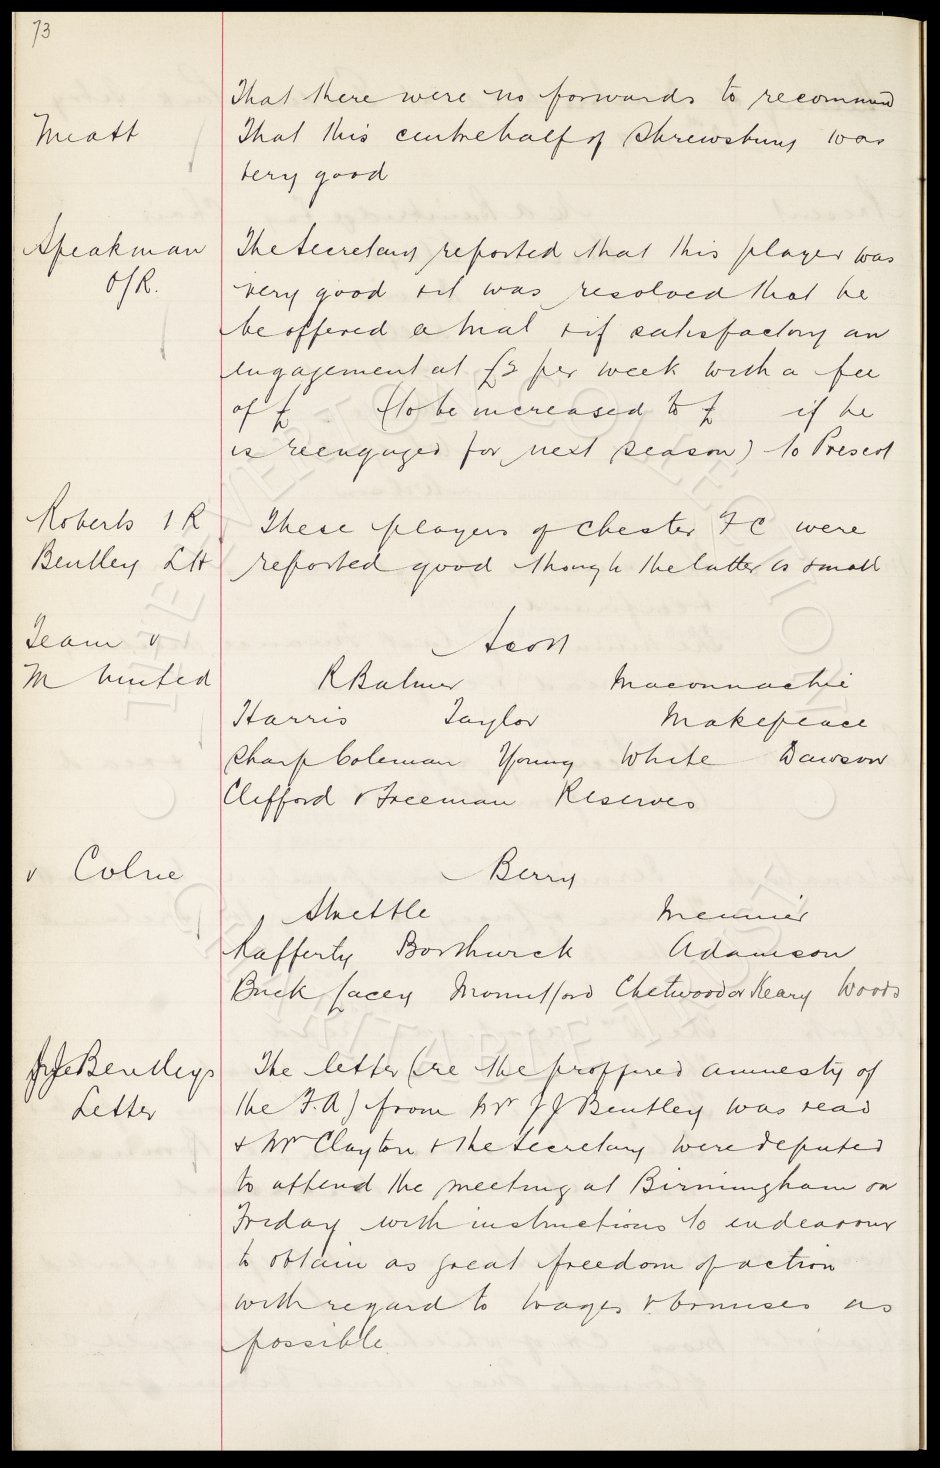 73
That there were no forwards to recommend
Miatt That this centrehalf of Shrewsbury was
very good
Speakman The Secretary reported that this player was
O/R. very good & it was resolved that he
be offered a trial & if satisfactory an
engagement at £2 per week with a fee
of £ (to be increased to £ if he
is reengaged for next season) to Prescot
Roberts I R These players of Chester F C were
Bentley LH reported good though the latter is small
Team v Scott
M United R Balmer Maconnachie
Harris Taylor Makepeace
Sharp Coleman Young White Dawson
Clifford & Freeman Reserves
v Colne Berry
Strettle Meunier
Rafferty Borthwick Adamson
Buck Lacey Mountford Chetwood or Keary Woods
J J Bentleys The letter (re the proffered amnesty of
Letter the F.A) from Mr J J Bentley was read
& Mr Clayton & the Secretary were deputed
to attend the meeting at Birmingham on
Friday with instructions to endeavour
to obtain as great freedom of action
with regard to wages & bonuses as
possible.